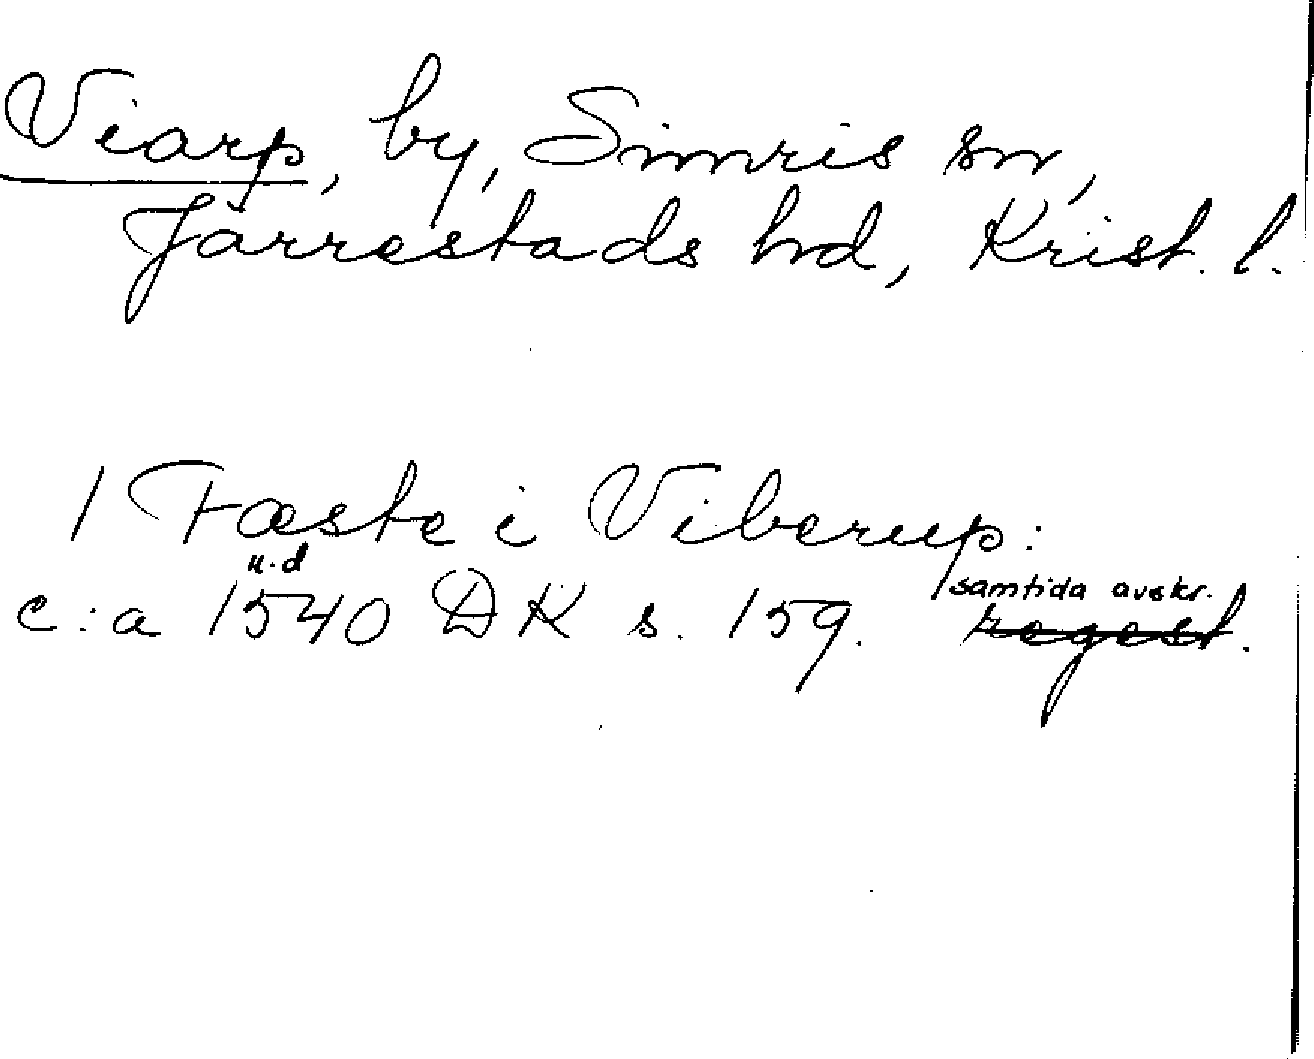 Viarp, by, Simris sn,
Järrestads hd, Krist. l.
1 Fæste i Viberup:
u.d
c:a 1540 DK s. 159. samtida avskr.
regest.